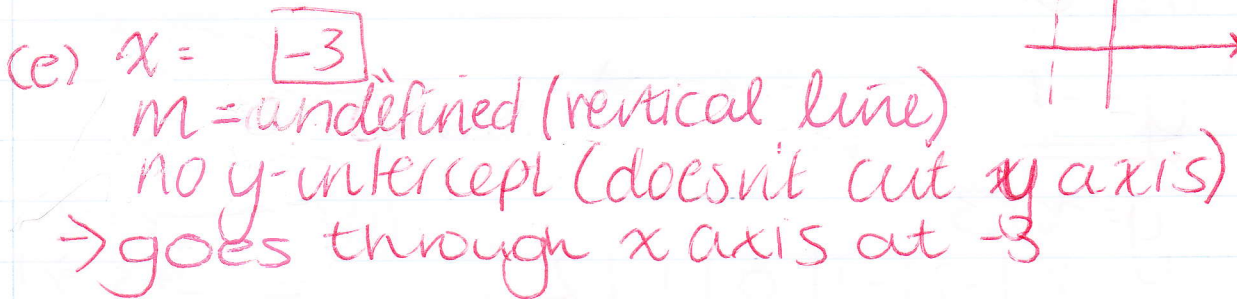 (e) x = -3
m = undefined (vertical line)
no y-intercept (doesn't cut y axis)
→ goes through x axis at -3